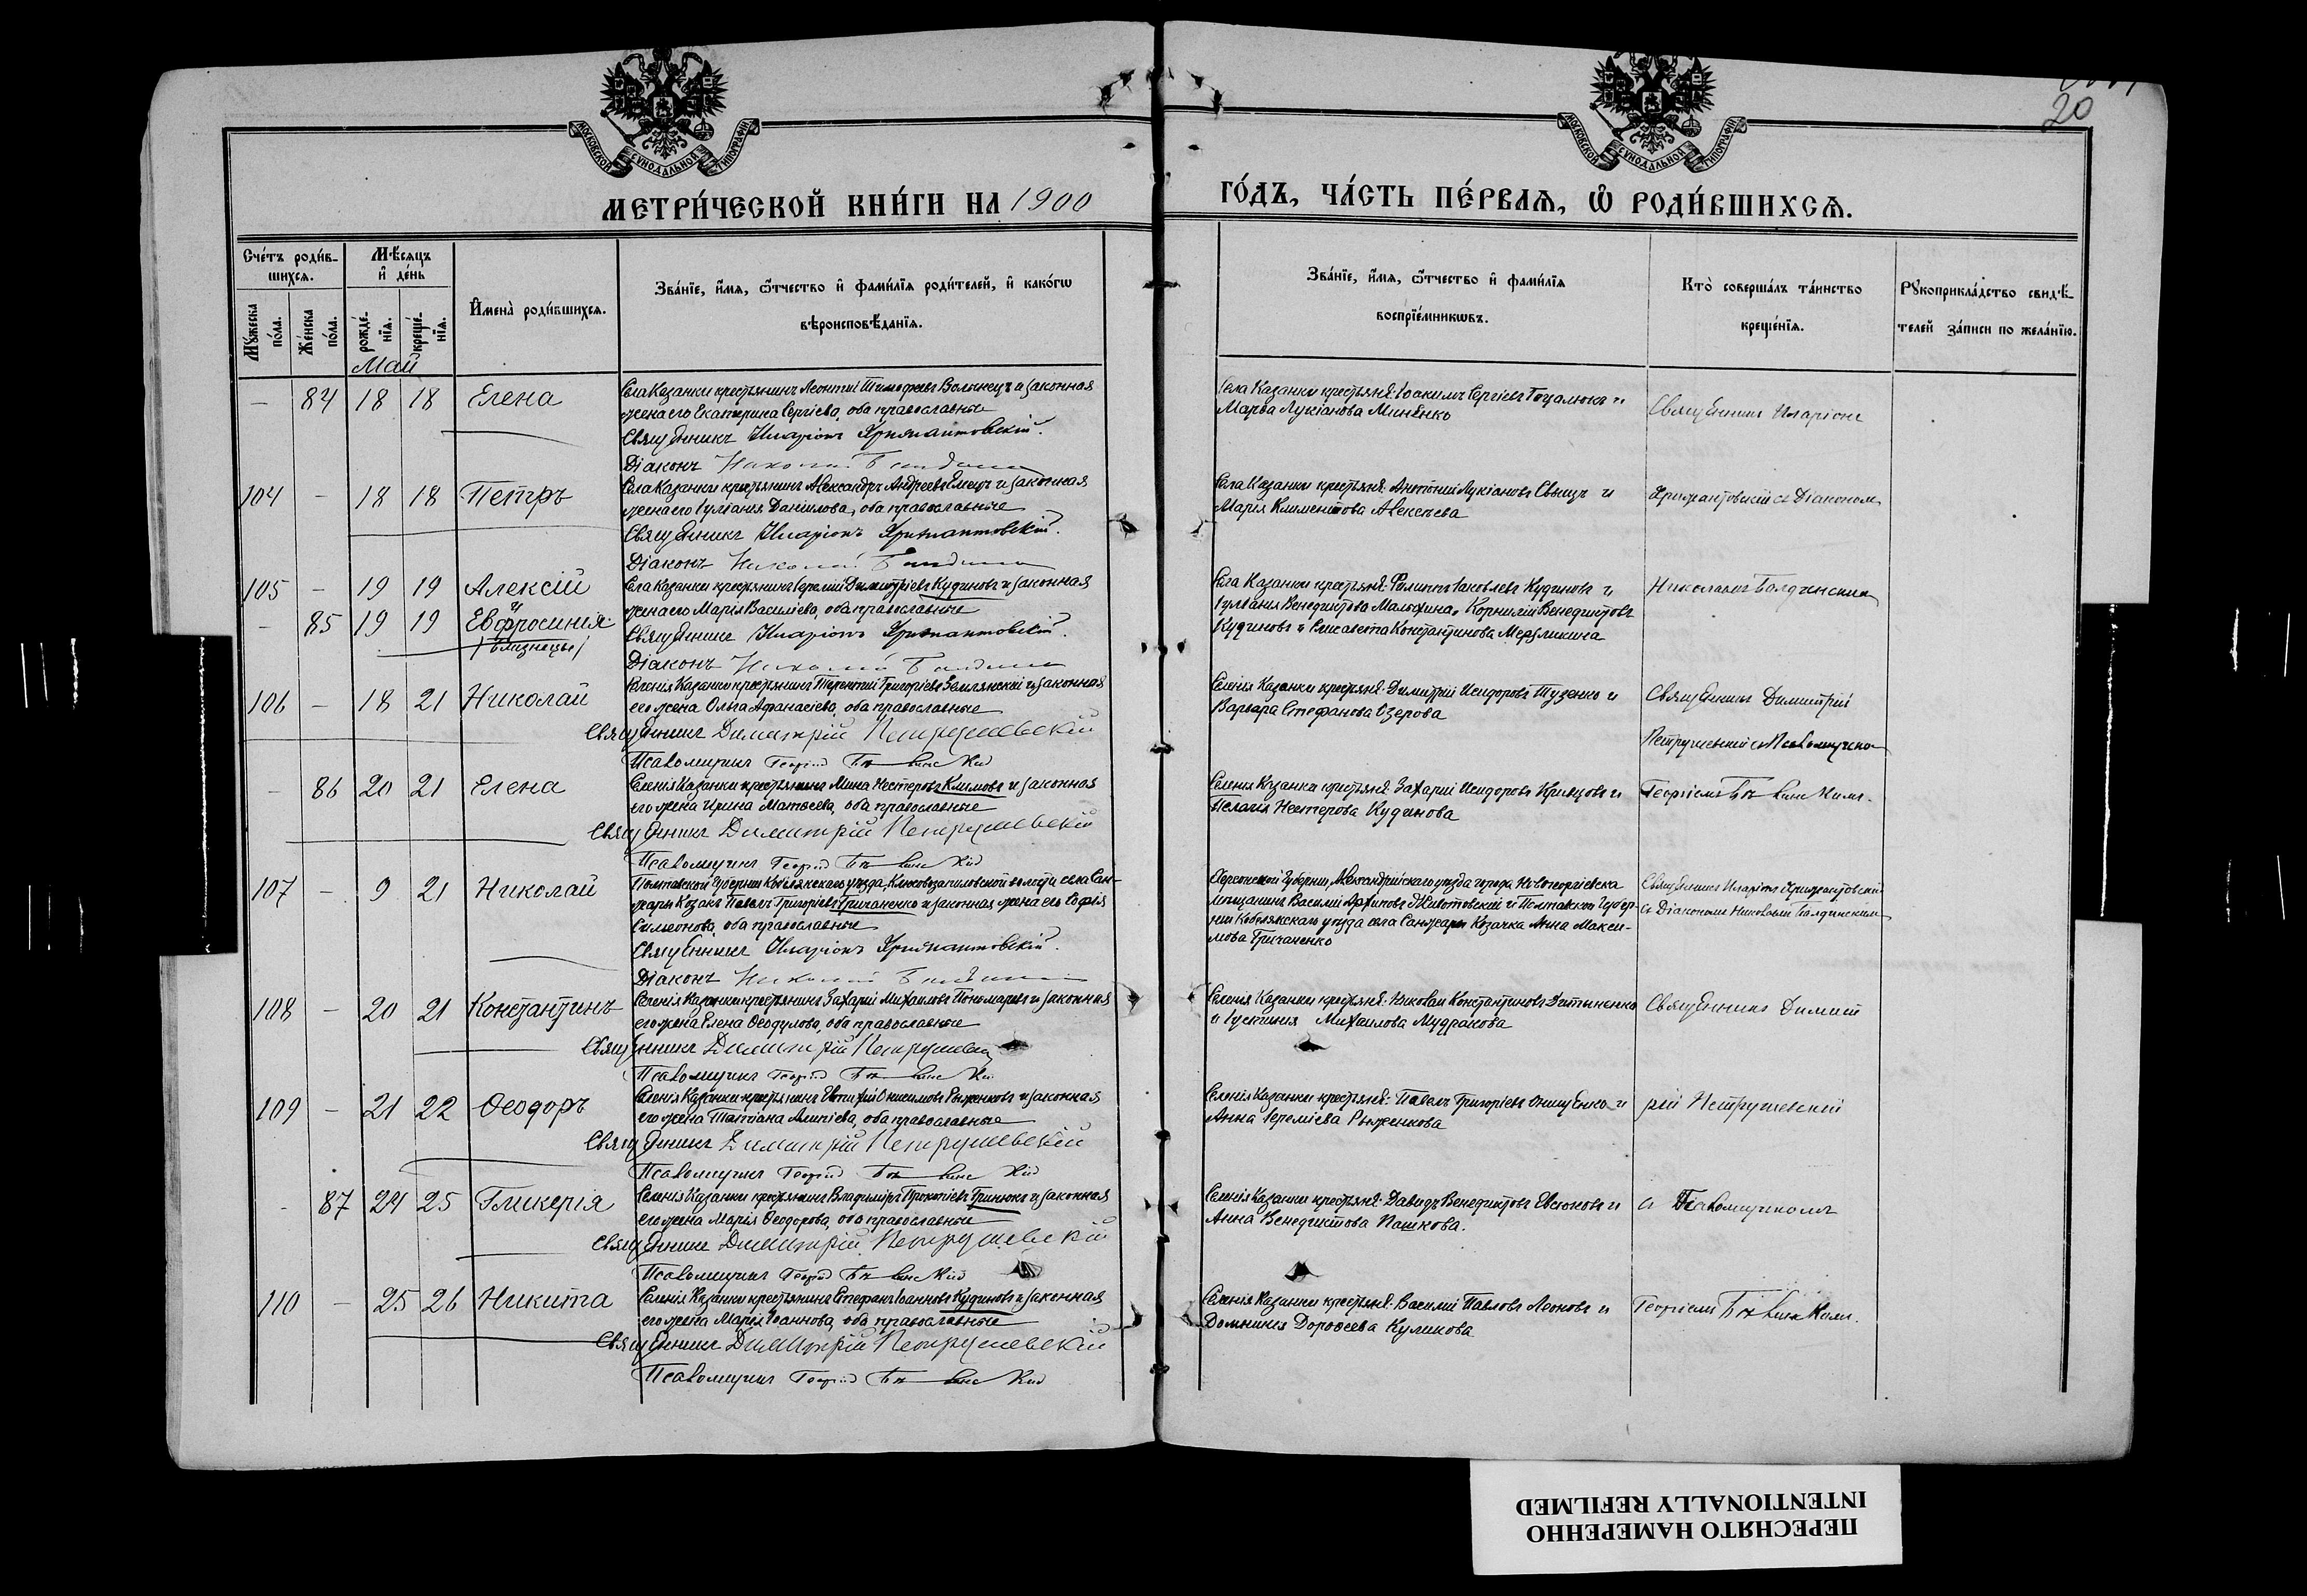 МОСКОВСКОЙ СУНОДАЛЬНОЙ ТИПОГРАФІИ
МОСКОВСКОЙ СУНОДАЛЬНОЙ ТИПОГРАФІИ
20
МЕТРИ́ЧЕСКОЙ КНИ́ГИ НА 1900
ГО́ДЪ, ЧА́СТЬ ПЕ́РВАѦ, Ѡ҆ РОДИ́ВШИХСѦ.
Сче́тъ роди́в-
шихсѧ.
Мꙋ́жеска по́ла.
Же́нска по́ла.
Мѣ́сѧцъ
и҆ де́нь
рожде́-нїѧ.
креще́-нїѧ.
Май
И҆мена̀ роди́вшихсѧ.
Зва́нїе, и҆́мѧ, ѻ҆́тчество и҆ фами́лїѧ роди́телей, и҆ како́гѡ
вѣроисповѣ́данїѧ.
Зва́нїе, и҆́мѧ, ѻ҆́тчество и҆ фами́лїѧ
воспрїе́мникѡвъ.
Кто̀ соверша́лъ та́инство
креще́нїѧ.
Рꙋкоприкла́дство свидѣ́-
телей за́писи по жела́нїю.
— 84 18 18 Елена
Села Казанки крестьянинъ Леонтій Тимофеевъ Волынецъ и законная
жена его Екатерина Сергіева, оба православные
Священникъ Иларіонъ Крижантовскій.
Діаконъ Николай
Села Казанки крестьяне: Іоакимъ Сергіевъ и
Марѳа Лукіанова Миненко
Священникъ Иларіонъ
104 — 18 18 Петръ
Села Казанки крестьянинъ Александръ Андреевъ Емецъ и законная
жена его Іуліанія Даніилова, оба православные
Священникъ Иларіонъ Крижантовскій.
Діаконъ Николай
Села Казанки крестьяне: Антоній Лукіановъ и
Марія Климентова Алексѣева
Крижантовскій съ Діакономъ
105 — 19 19 Алексій
и
— 85 19 19 Евфросинія
/близнецы/
Села Казанки крестьянинъ Іеремій Димитріевъ Кудиновъ и законная
жена его Марія Василіева, оба православные
Священникъ Иларіонъ Крижантовскій.
Діаконъ Николай
Села Казанки крестьяне: Филиппъ Іаковлевъ Кудиновъ и
Іуліанія Венедиктова Малыхина, Корнилій Венедиктовъ
Кудиновъ и Елисавета Константинова Мерзликина
Николаемъ Болдинскимъ
106 — 18 21 Николай
Селенія Казанки крестьянинъ Терентій Григоріевъ Землянскій и законная
его жена Ольга Афанасіева, оба православные
Священникъ Димитрій Петрушевскій
Псаломщикъ Георгій
Селенія Казанки крестьяне: Димитрій Исидоровъ Тузенко и
Варвара Стефанова Озерова
Священникъ Димитрій
Петрушевскій съ Псаломщикомъ
— 86 20 21 Елена
Селенія Казанки крестьянинъ Мина Нестеровъ Климовъ и законная
его жена Ирина Матѳеева, оба православные
Священникъ Димитрій Петрушевскій
Псаломщикъ Георгій
Селенія Казанки крестьяне: Захарій Исидоровъ Кривцовъ и
Пелагія Нестерова Кудинова
Георгіемъ
107 — 9 21 Николай
Полтавской Губерніи Кобелякскаго уѣзда, волости села Сан-
жары Козакъ Павелъ Григоріевъ Гричаненко и законная жена его Софія
Симеонова, оба православные
Священникъ Иларіонъ Крижантовскій.
Діаконъ Николай
Херсонской Губерніи, Александрійскаго уѣзда города Новогеоргіевска
мѣщанинъ Василій Архиповъ Животовскій и Полтавской Губер-
ніи Кобелякскаго уѣзда села Санжары Козачка Анна Макси-
мова Гричаненко
Священникъ Иларіонъ Крижантовскій
съ Діакономъ Николаемъ Болдинскимъ
108 — 20 21 Константинъ
Селенія Казанки крестьянинъ Захарій Михаиловъ Пономаревъ и законная
его жена Елена Ѳеодулова, оба православные
Священникъ Димитрій Петрушевскій
Псаломщикъ Георгій
Селенія Казанки крестьяне: Николай Константиновъ и
и Іустинія Михаилова Мудракова
Священникъ Димит
109 — 21 22 Ѳеодоръ
Селенія Казанки крестьянинъ Евтихій Онисимовъ Рыженковъ и законная
его жена Татіана Алипіева, оба православные
Священникъ Димитрій Петрушевскій
Псаломщикъ Георгій
Селенія Казанки крестьяне: Павелъ Григоріевъ Онищенко и
Анна Іереміева Рыженкова
рій Петрушевскій
— 87 24 25 Гликерія
Селенія Казанки крестьянинъ Владиміръ Прокопіевъ Гринюкъ и законная
его жена Марія Ѳеодорова, оба православные
Священникъ Димитрій Петрушевскій
Псаломщикъ Георгій
Селенія Казанки крестьяне: Давидъ Венедиктовъ Евсюковъ и
Анна Венедиктова Пашкова.
съ Псаломщикомъ
110 — 25 26 Никита
Селенія Казанки крестьянинъ Стефанъ Іоанновъ Кудиновъ и законная
его жена Марія Іоаннова, оба православные
Священникъ Димитрій Петрушевскій
Псаломщикъ Георгій
Селенія Казанки крестьяне: Василій Павловъ Леоновъ и
Домникія Дороѳеева Куликова
Георгіемъ
ПЕРЕСНЯТО НАМЕРЕННО
INTENTIONALLY REFILMED